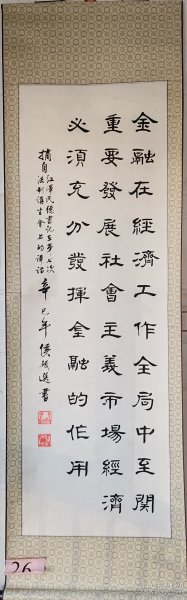 金融在經濟工作全局中至關
重要發展社會主義市場經濟
必須充分發揮金融的作用
摘自江澤民總書記在第七次
法制講座會上的講話
辛巳年
書
26